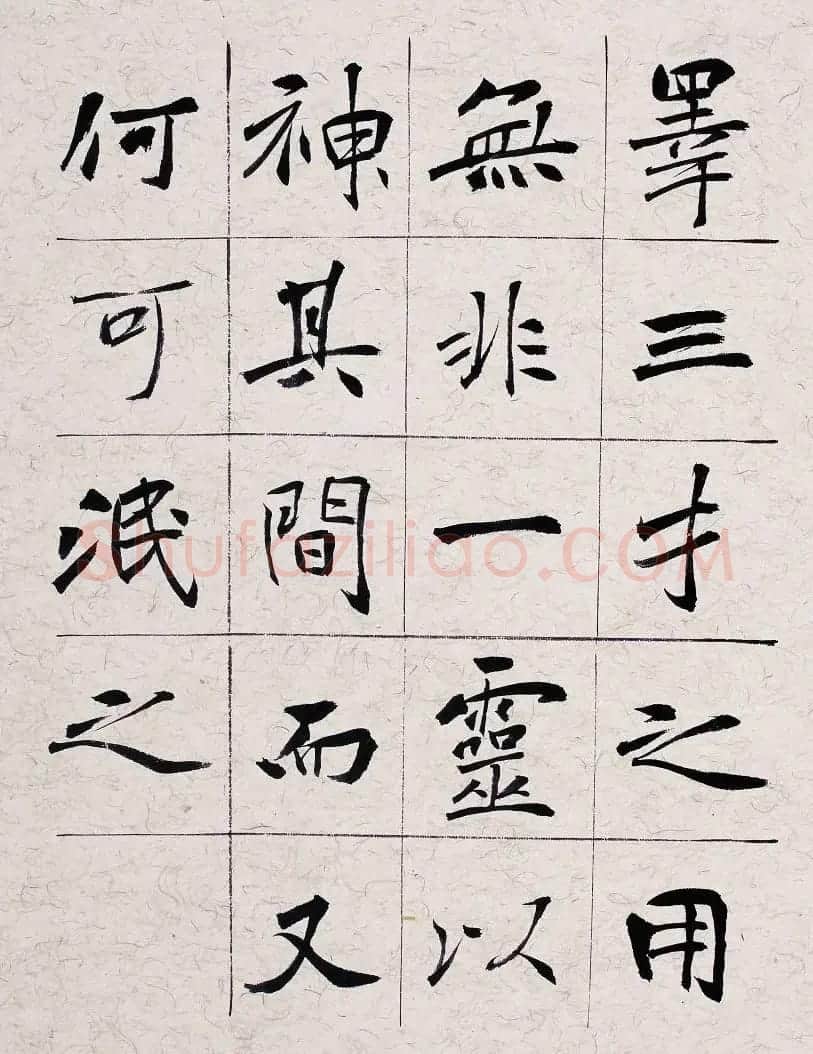 睪三才之用
無非一靈以
神其間而又
何可泯之
Shufaziliao.COM